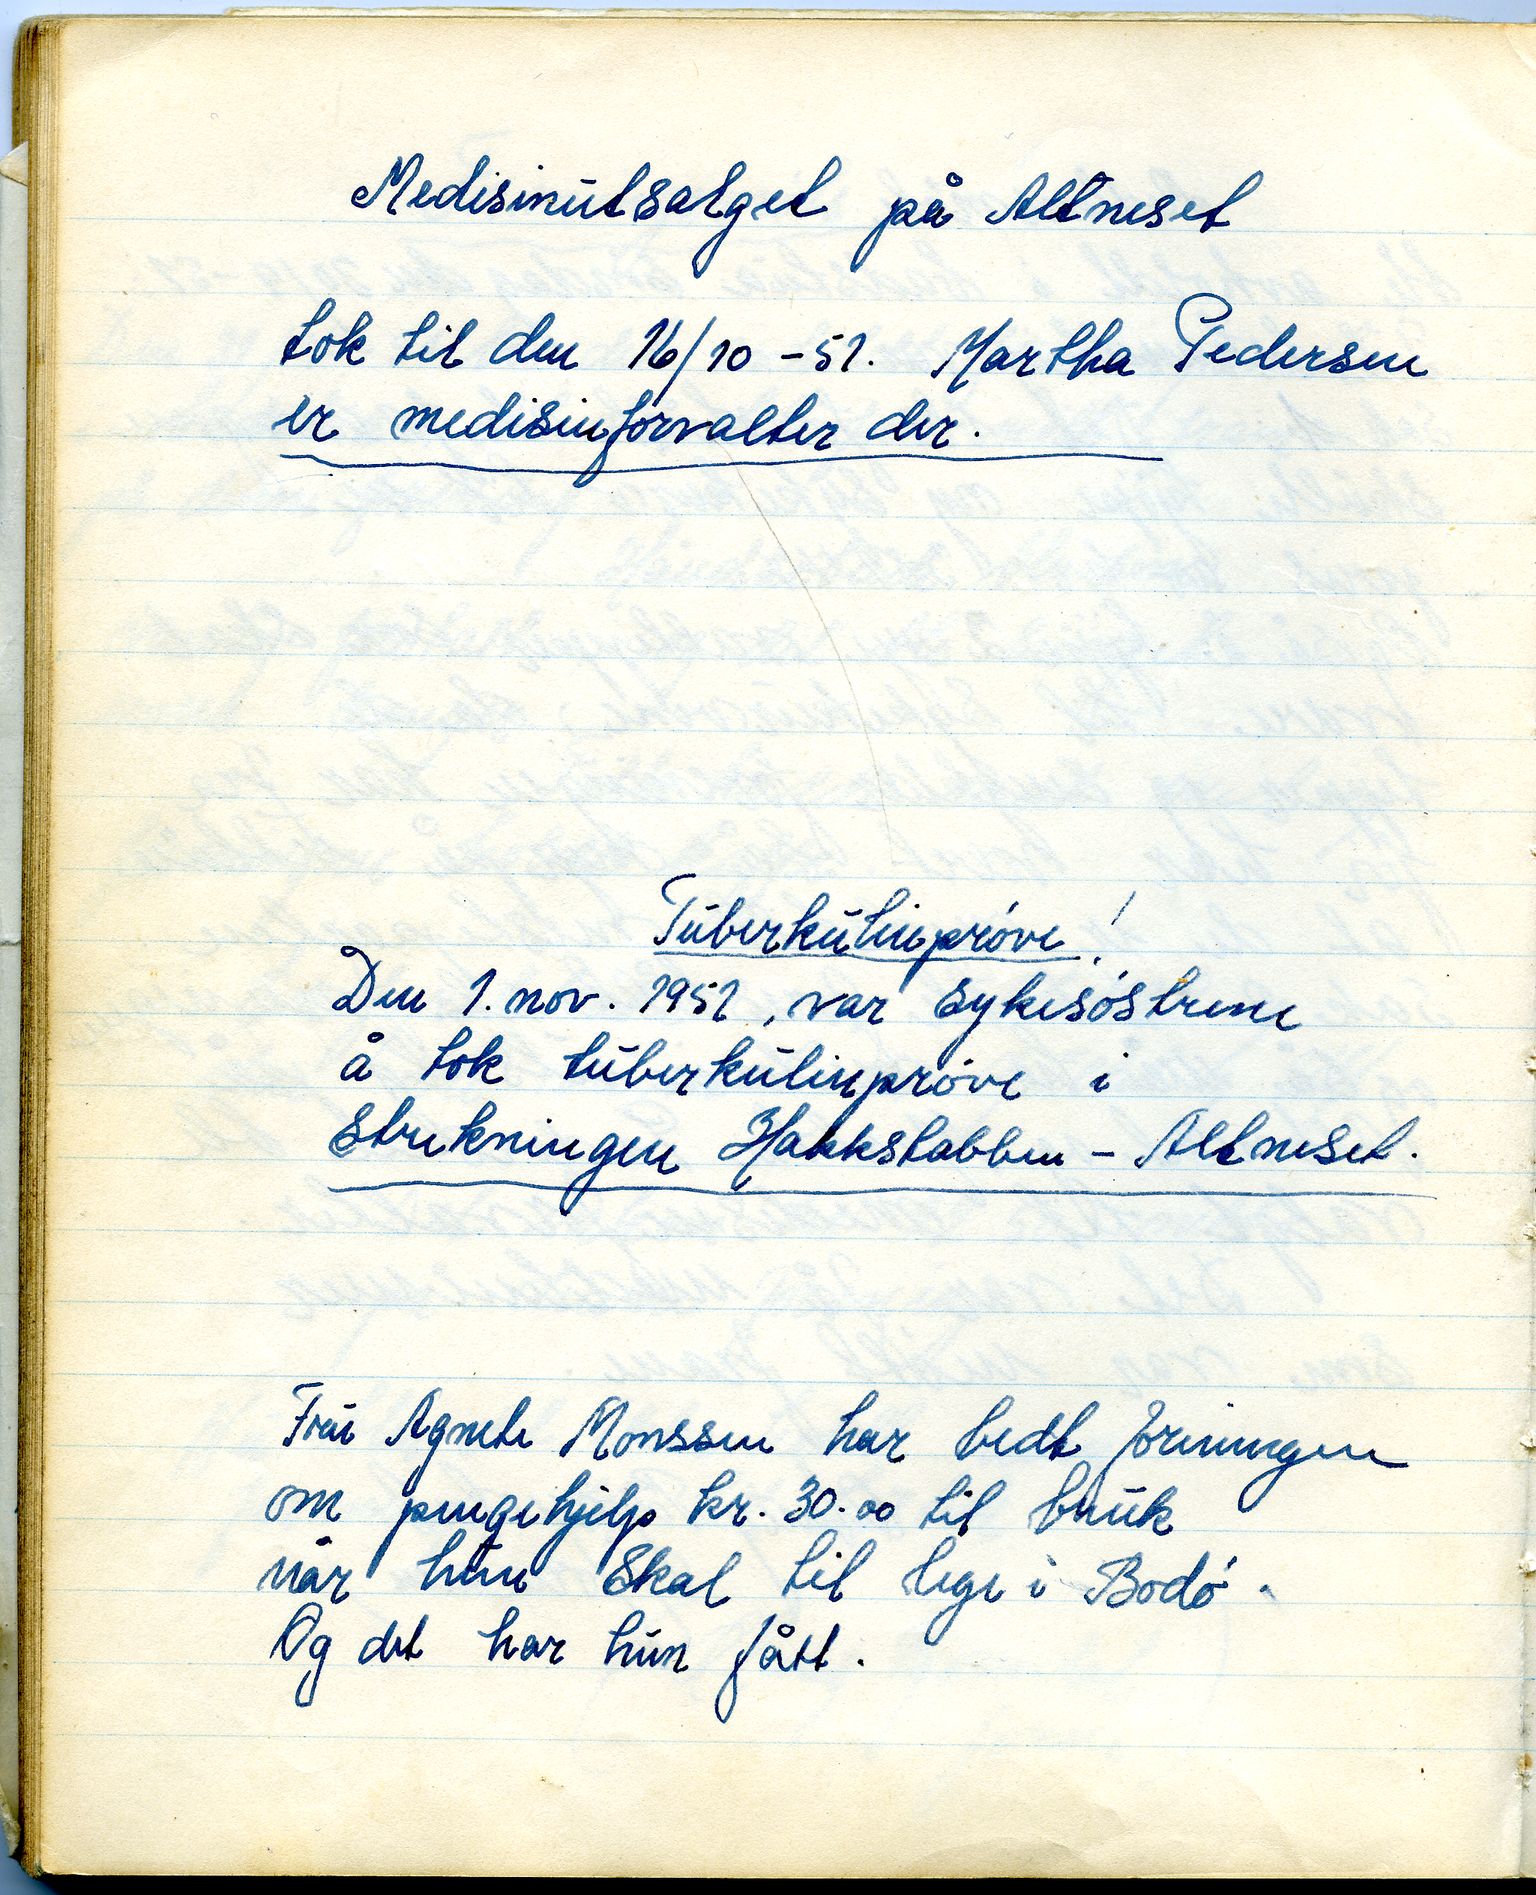 Medisinutsalget på Altneset
tok til den 16/10 -51. Martha Pedersen
er medisinforvalter der.
Tuberkulinprøve!
Den 1. nov. 1951, var sykesøstrene
å tok tuberkulinprøve i
strekningen Hakkstabben - Altneset.
Fru Agnete Monssen har bedt foreningen
om pengehjelp kr. 30.00 til bruk
når hun skal til lege i Bodø.
Og det har hun fått.